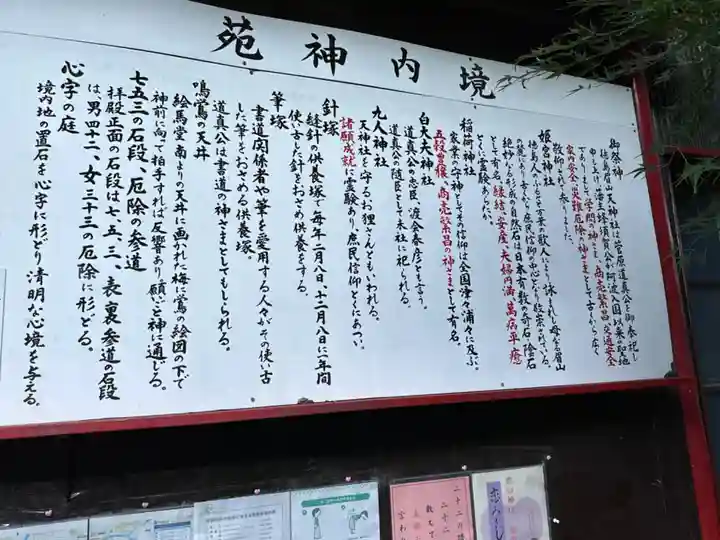 境内神苑
御祭神
徳島眉山天神社は菅原道真公を御奉祀し
申し上げ
家内安全、災難厄除の神さまとして古くから広く
敬仰されて参りました。
姫宮神社
徳島人々
絶妙なる形成の自然石は日本有数の奇石、陰石
として有名。縁結、安産、夫婦円満、萬病平癒
とくに霊験あらたか。
稲荷神社
家業の守神としてその信仰は全国津々浦々に及ぶ。
五穀豊穣、商売繁昌の神さまとして有名。
白太夫神社
道真公の忠臣、渡会春彦とも言う。
道真公の随臣として末社に祀られる。
九人神社
天神社を守るお狸さんともいわれる。
諸願成就に霊験あり、庶民信仰とくにあつい。
針塚
縫針の供養塚で毎年二月八日、十二月八日に一年間
使い古した針をおさめ供養をする。
筆塚
書道関係者や筆を愛用する人々がその使い古
した筆をおさめる供養塚。
道真公は書道の神さまとしてもしられる。
鳴鶯の天井
絵馬堂南よりの天井に画かれた梅に鶯の絵図の下で
神前に向って拍手すれば反響あり願ごと神に通じる。
七五三の石段、厄除の参道
拝殿正面の石段は七、五、三、表、裏参道の石段
は、男四十二、女三十三の厄除に形どる。
心字の庭
境内地の置石を心字に形どり清明な心境を与える。